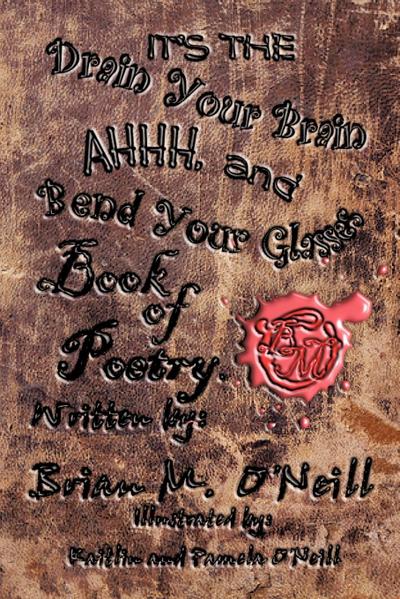 IT'S THE
Drain Your Brain
AHHH, and
Bend Your Glasses
Book
of
Poetry.
Written by:
Brian M. O'Neill
Illustrated by:
Kaitlin and Pamela O'Neill